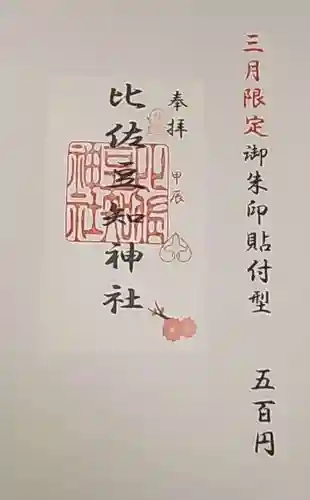 三月限定御朱印貼付型 五百円
奉拝
甲辰
比佐豆知神社